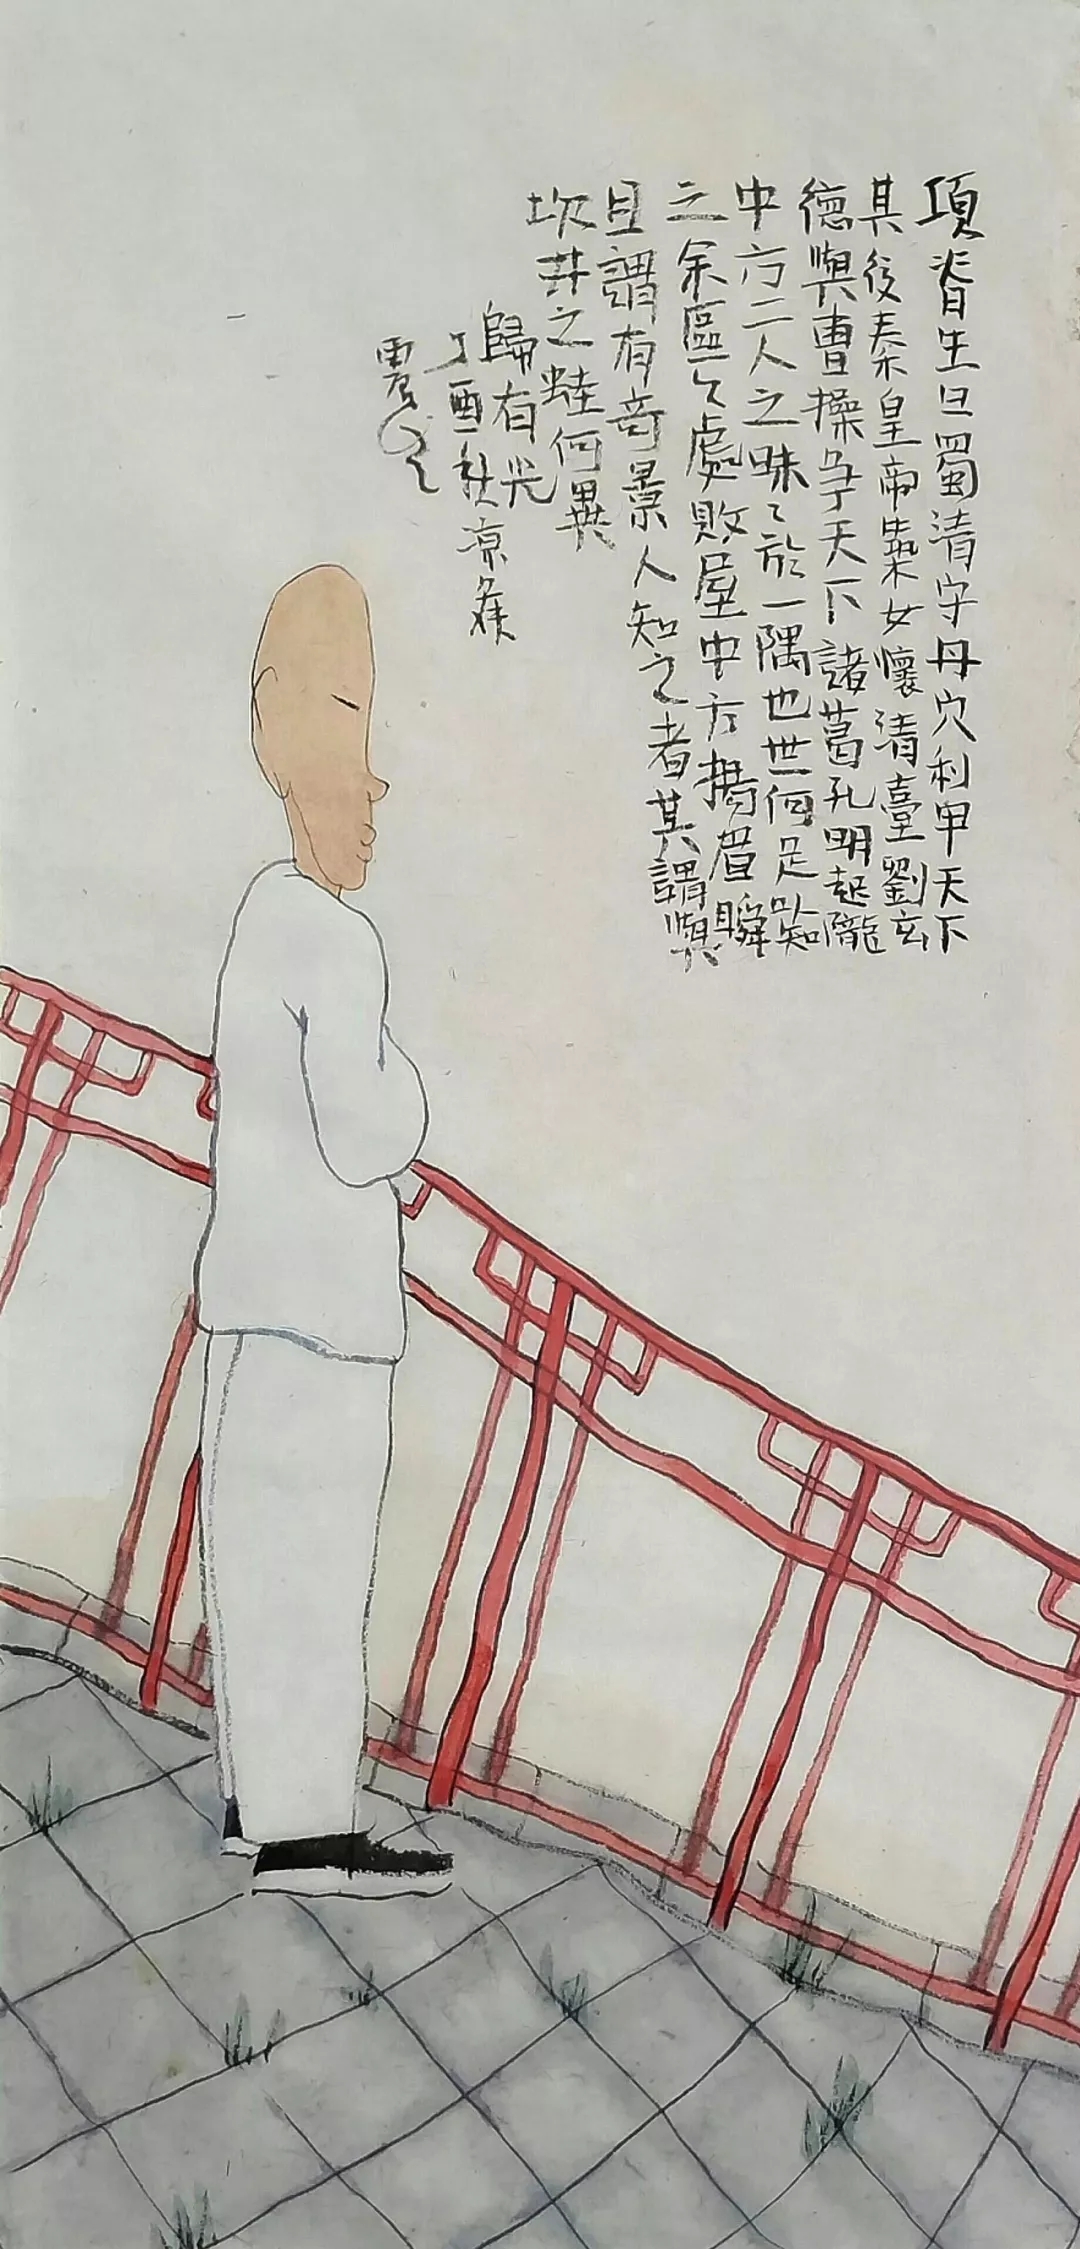 項脊生曰蜀清守丹穴利甲天下
其後秦皇帝築女懷清臺劉玄
德與曹操爭天下諸葛孔明起隴
中方二人之昧々於一隅也世何足知
之余區々處敗屋中方揚眉瞬
目謂有奇景人知之者其謂與
坎井之蛙何異
歸有光
丁酉秋涼